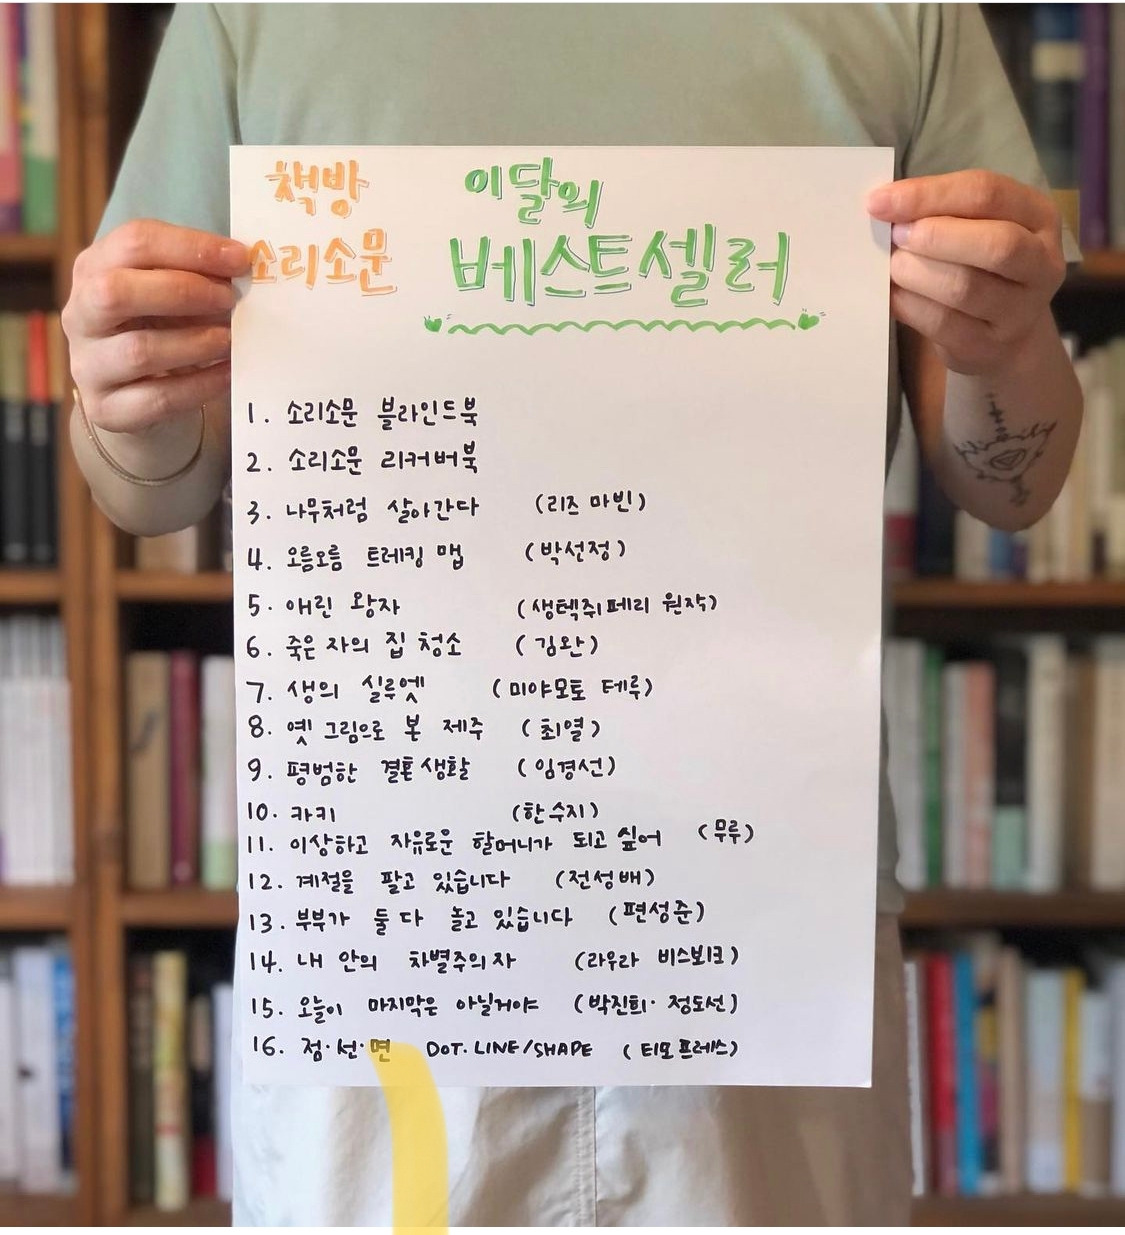 책방
소리소문
이달의
베스트셀러
1. 소리소문 블라인드북
2. 소리소문 리커버북
3. 나무처럼 살아간다 (리즈 마빈)
4. 오름오름 트레킹 맵 (박선정)
5. 애린 왕자 (생텍쥐페리 원작)
6. 죽은 자의 집 청소 (김완)
7. 생의 실루엣 (미야모토 테루)
8. 옛 그림으로 본 제주 (최열)
9. 평범한 결혼생활 (임경선)
10. 카키 (한수지)
11. 이상하고 자유로운 할머니가 되고 싶어 (무루)
12. 계절을 팔고 있습니다 (전성배)
13. 부부가 둘 다 놀고 있습니다 (편성준)
14. 내 안의 차별주의자 (라우라 비스뵈크)
15. 오늘이 마지막은 아닐거야 (박진희·정도선)
16. 점·선·면 DOT.LINE/SHAPE (티모 프레스)